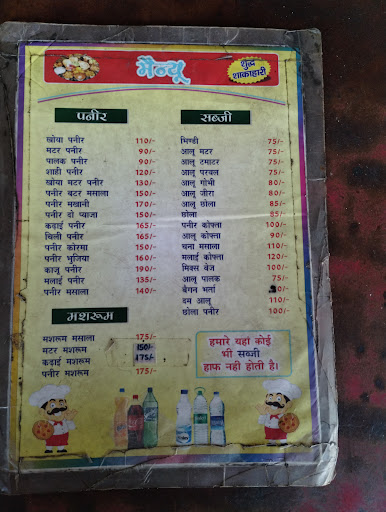 मेन्यू
शुद्ध
शाकाहारी
पनीर
खोया पनीर 110/-
मटर पनीर 90/-
पालक पनीर 90/-
शाही पनीर 120/-
खोया मटर पनीर 130/-
पनीर बटर मसाला 150/-
पनीर मखानी 170/-
पनीर दो प्याजा 150/-
कढ़ाई पनीर 165/-
चिली पनीर 165/-
पनीर कोरमा 150/-
पनीर भुजिया 160/-
काजू पनीर 190/-
मलाई पनीर 135/-
पनीर मसाला 140/-
मशरूम
मशरूम मसाला 175/-
मटर मशरूम 150/-
कढ़ाई मशरूम 175/-
पनीर मशरूम 175/-
सब्जी
भिण्डी 75/-
आलू मटर 75/-
आलू टमाटर 75/-
आलू परवल 75/-
आलू गोभी 80/-
आलू जीरा 80/-
आलू छोला 85/-
छोला 85/-
पनीर कोफ्ता 100/-
आलू कोफ्ता 90/-
चना मसाला 110/-
मलाई कोफ्ता 120/-
मिक्स वेज 100/-
आलू पालक 75/-
बैगन भर्ता
दम आलू 110/-
छोला पनीर 100/-
हमारे यहां कोई
भी सब्जी
हाफ नही होती है।